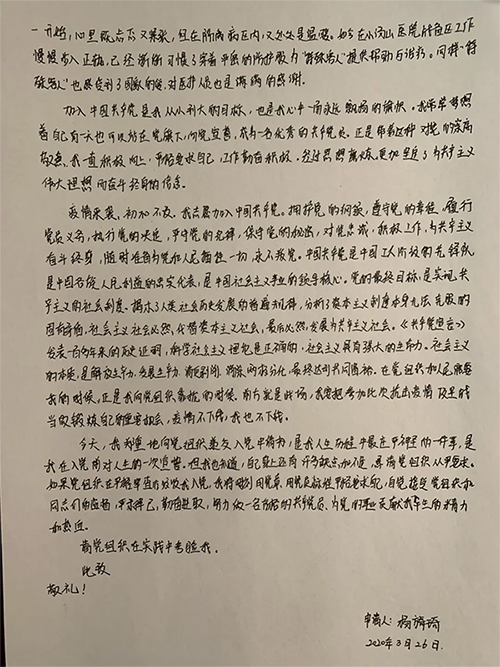 一开始，心里既忐忑又紧张，但在隔离病区内，又处处是温暖。如今在小汤山医院的各区工作
慢慢步入正轨，已经渐渐习惯了穿着笨重的防护服为“特殊客人”提供帮助与治疗。同样“特
殊客人”也感受到了国家的爱，对医护人员也是满满的感谢。
加入中国共产党是我从小到大的目标，也是我心中一面永远飘扬的旗帜。我常常梦想
着自己有一天也可以站在党旗下，向党宣誓，成为一名优秀的共产党员。正是带着这种对党的崇高
敬意，我一直积极向上，严格要求自己，工作勤奋积极。经过思想锻炼，更加坚定了为共产主义
伟大理想而奋斗终身的信念。
疫情来袭，初心不改。我志愿加入中国共产党，拥护党的纲领，遵守党的章程，履行
党员义务，执行党的决定，严守党的纪律，保守党的秘密，对党忠诚，积极工作，为共产主义
奋斗终身，随时准备为党和人民牺牲一切，永不叛党。中国共产党是中国工人阶级的先锋队
是中国各族人民利益的忠实代表，是中国社会主义事业的领导核心。党的最终目标，是实现共
产主义的社会制度。揭示了人类社会历史发展的普遍规律，分析了资本主义制度本身无法克服的
固有矛盾，社会主义社会必然代替资本主义社会，最后必然发展为共产主义社会。《共产党宣言》
发表一百多年来的历史证明，科学社会主义理论是正确的，社会主义具有强大的生命力。社会主义
的本质，是解放生产力，发展生产力，消灭剥削，消除两极分化，最终达到共同富裕。在党组织和人民需要
我的时候，正是我向党组织靠拢的时候，前方就是战场，我要把参加此次抗击疫情
当成锻炼自己的重要机会，疫情不下线，我也不下线。
今天，我郑重地向党组织递交入党申请书，是我人生历程中最庄严神圣的一件事，是
我在入党前对人生的一次宣誓。但我也知道，自己身上还有许多缺点和不足，恳请党组织从严要求。
如果党组织在严格审查后放收我入党，我将时刻用党章，用党员标准严格要求自己，自觉接受党组织和
同志们的监督，严于律己，勤奋进取，努力做一名合格的共产党员，为党的事业贡献我毕生的精力
和热血。
请党组织在实践中考验我。
此致
敬礼！
申请人：
2020年3月26日.